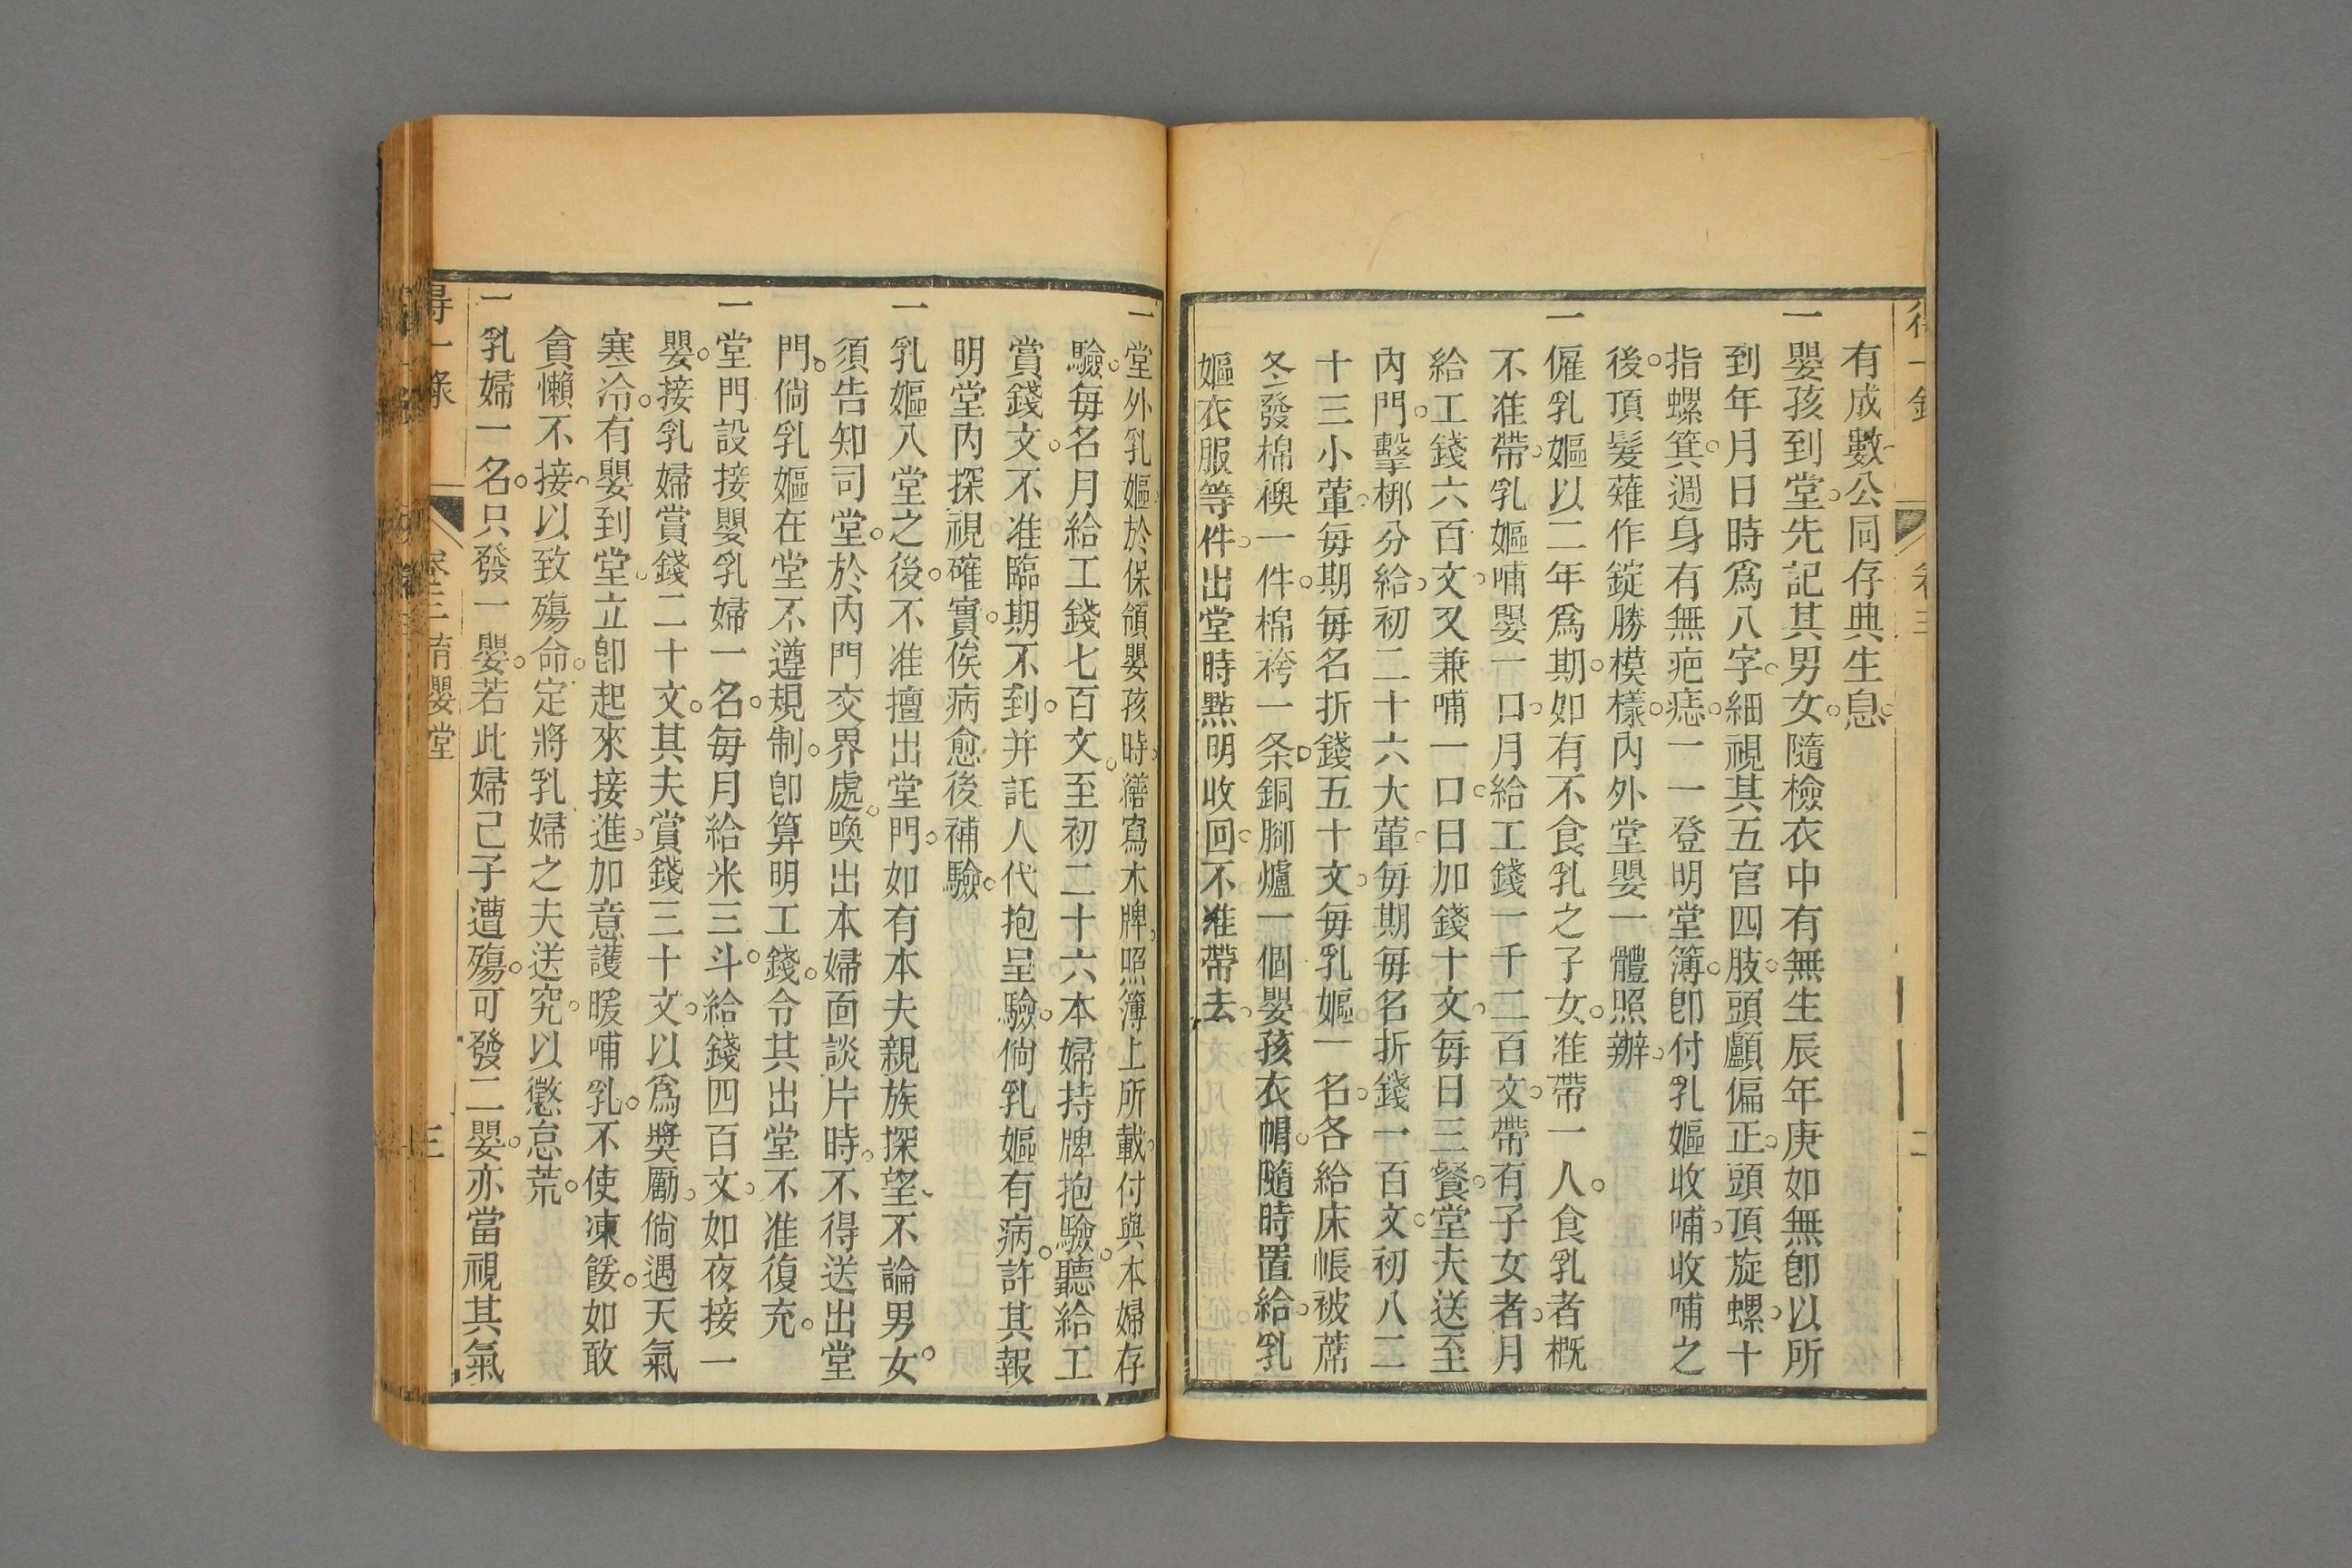 有成數公同存典生息。
一嬰孩到堂。先記其男女。隨檢衣中有無生辰年庚如無卽以所
到年月日時爲八字。細視其五官四肢。頭顱偏正。頭頂旋螺。十
指螺箕。週身有無疤痣。一一登明堂簿。卽付乳嫗收哺。收哺之
後。頂髮薙作錠勝模樣。內外堂嬰一體照辦。
一僱乳嫗以二年爲期。如有不食乳之子女。准帶一人。食乳者槪
不准帶。乳嫗哺嬰一口。月給工錢一千二百文。帶有子女者。月
給工錢六百文。又兼哺一口。日加錢十文。每日三餐。堂夫送至
內門。擊梆分給。初二十六大葷。每期每名折錢一百文。初八二
十三小葷。每期每名折錢五十文。每乳嫗一名。各給床帳被蓆
冬發棉襖一件。棉袴一条。銅腳爐一個嬰孩衣帽。隨時置給。乳
嫗衣服等件。出堂時點明收回。不准帶去。
一堂外乳嫗。於保領嬰孩時。繕寫木牌。照簿上所載。付與本婦存
驗。每名月給工錢七百文。至初二十六本婦持牌抱驗。聽給工
賞錢文。不准臨期不到。并託人代抱呈驗。倘乳嫗有病。許其報
明堂內探視確實。俟病愈後補驗。
一乳嫗入堂之後。不准擅出堂門。如有本夫親族探望、不論男女。
須告知司堂。於內門交界處。喚出本婦面談片時。不得送出堂
門。倘乳嫗在堂不遵規制。卽算明工錢。令其出堂。不准復充。
一堂門設接嬰乳婦一名。每月給米三斗。給錢四百文。如夜接一
嬰。接乳婦賞錢二十文。其夫賞錢三十文。以爲獎勵。倘遇天氣
寒冷。有嬰到堂。立卽起來接進。加意護暖哺乳。不使凍餒。如敢
貪懶不接。以致殤命。定將乳婦之夫送究。以懲怠荒。
一乳婦一名。只發一嬰。若此婦己子遭殤。可發二嬰。亦當視其氣
得一錄
卷三育嬰堂
三